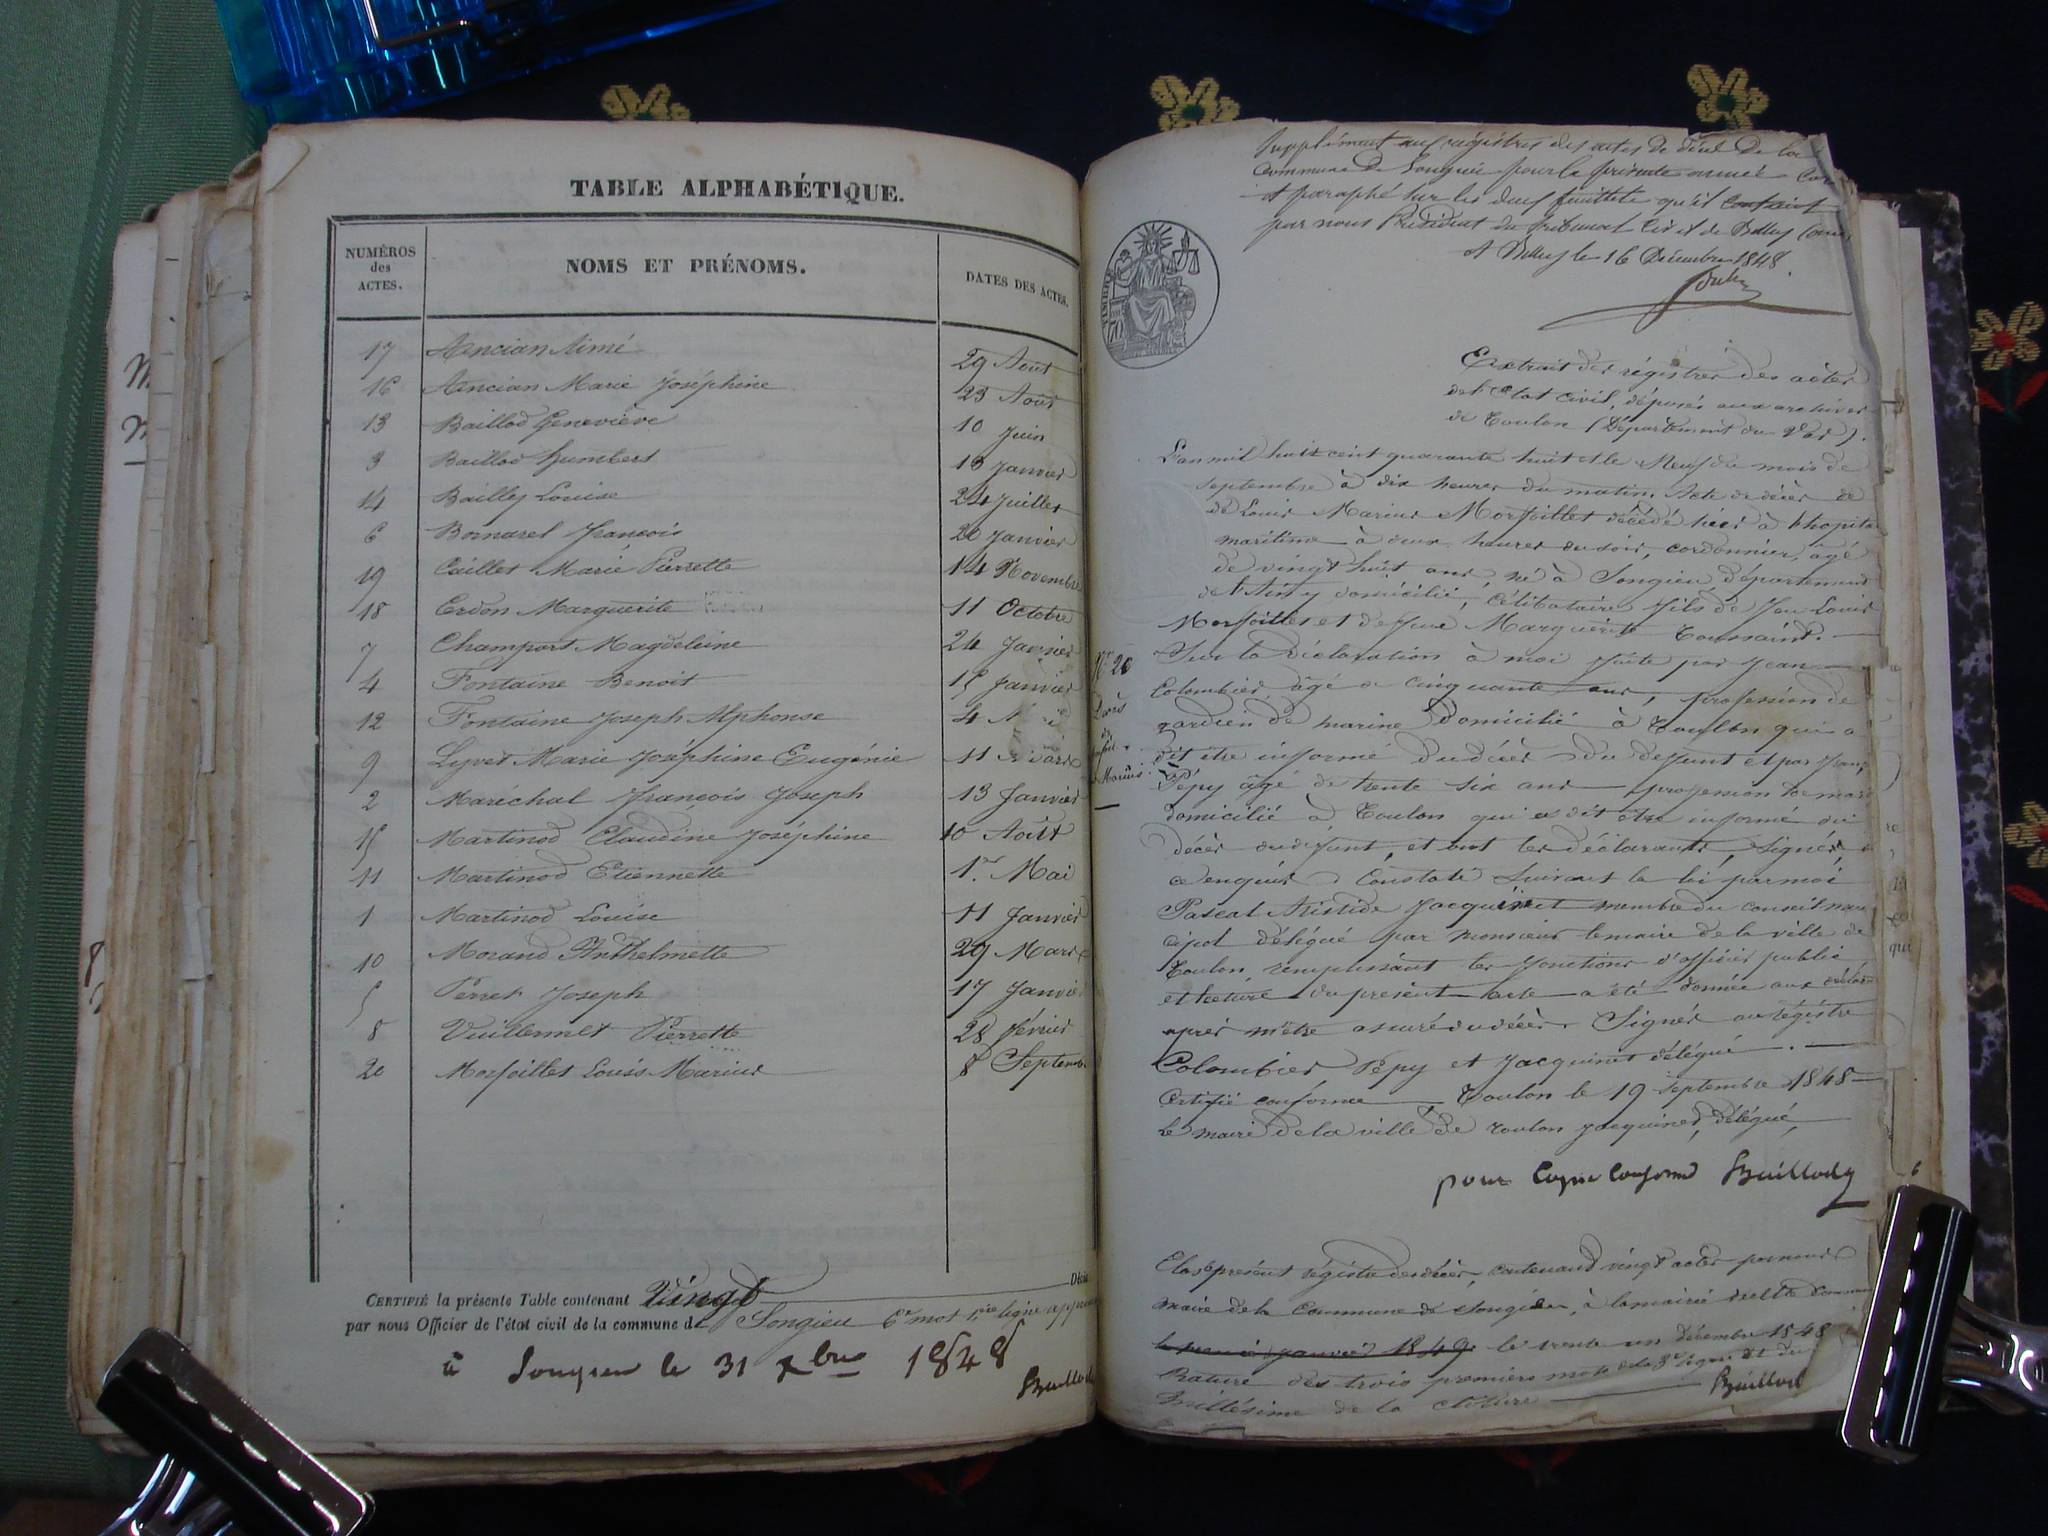 TABLE ALPHABÉTIQUE.
NUMÉROS des ACTES.
NOMS ET PRÉNOMS.
DATES DES ACTES.
17 Ancian Aimé 29 Aout
16 Ancian Marie Joséphine 23 Aout
13 Baillod Geneviève 10 Juin
3 Baillod humbert 13 Janvier
14 Bailly Louise 24 Juillet
6 Bornarel François 20 Janvier
19 Caillet Marie Pierrette 14 Novembre
18 Cerdon Marguerite 11 Octobre
7 Champart Magdeleine 24 Janvier
4 Fontaine Benoit 15 Janvier
12 Fontaine Joseph Alphonse 4
9 Lyvet Marie Joséphine Eugénie 11
2 Maréchal François Joseph 13 Janvier
15 Martinod Claudine Joséphine 10 Aoiit
11 Martinod Etiennette 1er Mai
1 Martinod Louise 11 Janvier
10 Morand Anthelmette 29 Mars
5 Perret Joseph 17 Janvier
8 Vuillermet Pierrette 28 février
20 Morfoillet Louis Marius 8 Septemb
CERTIFIÉ la présente Table contenant Vingt Décès
par nous Officier de l'état civil de la commune de Songieu 6e mot 1ère ligne
à Songieu le 31 Xbre 1848
Baillod
Supplément aux registres des actes de décès de la
Commune de Songieu pour la présente année
et paraphé sur les deux feuillets qu'il contient
par nous Président du Tribunal Civil de Belley
A Belley le 16 Décembre 1848
Extrait des régistres des actes
de l'Etat Civil, déposés aux archives
de Toulon (Département du Var).
L'an mil huit cent quarante huit et le Neuf du mois de
septembre à dix heures du matin. Acte de décès de
de Louis Marius Morfoillet décédé hier à l'hopital
maritime à deux heures du soir, cordonnier, âgé
de vingt huit ans, né à Songieu département
de l'Ain y domicilié, célibataire fils de feu Louis
Morfoillet et de feue Marguerite Toussaint.
Sur la déclaration à moi faite par Jean
Colombier âgé de cinquante ans, profession de
gardien de marine domicilié à Toulon qui a
dit être informé du décès du deffunt et par
Pépy âgé de trente six ans profession
domicilié à Toulon qui a dit être informé du
décès du défunt, et ont les déclarants, signés
ce enquis Constaté Suivant la loi par moi
Pascal Aristide Jacquinet membre du conseil muni
cipal délégué par monsieur le maire de la ville de
Toulon, remplissant les fonctions d'officier public
et lecture du présent acte a été donnée aux
après m'être assuré du décès. Signés au régistre
Colombier Pépy et Jacquinet délégué.
Certifié conforme Toulon le 19 septembre 1848
Le maire de la ville de Toulon Jacquinet, délégué,
N° 20
Décès
de
Marius
pour Copie Conforme Baillod
Clos le présent régistre des décès, contenant vingt actes par nous
maire de la Commune de Songieu, à la mairie
le premier Janvier 1849. le trente un décembre 1848
Rature des trois premiers mots de la 3e ligne et du
millésime de la cloture Baillod